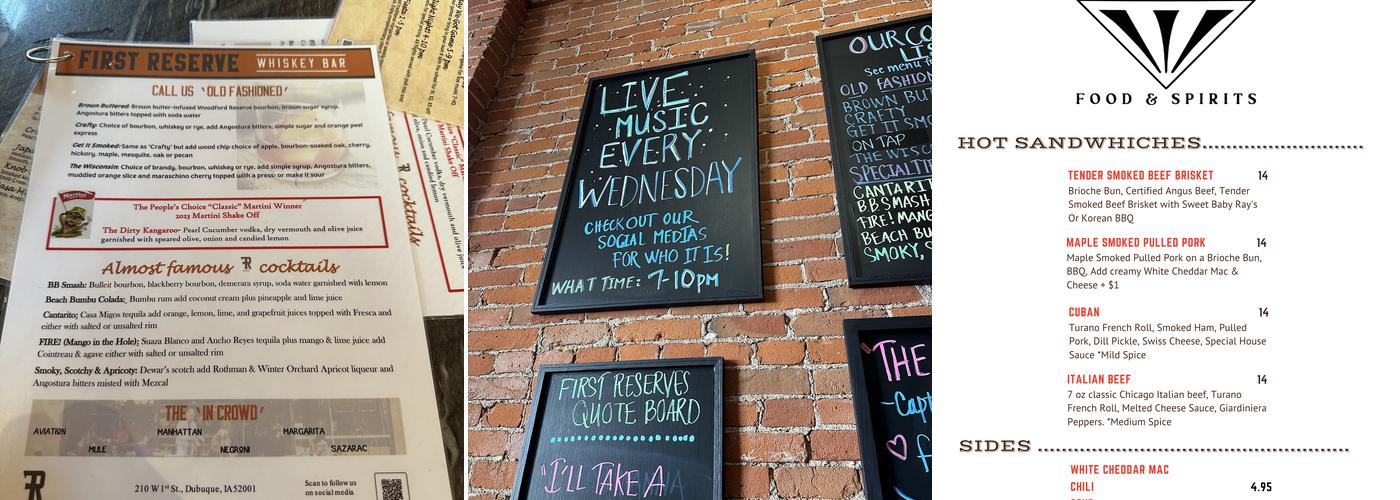 FIRST RESERVE WHISKEY BAR
CALL US 'OLD FASHIONED'
Brown Buttered: Brown butter-infused Woodford Reserve bourbon, brown sugar syrup,
Angostura bitters topped with soda water
Crafty: Choice of bourbon, whiskey or rye, add Angostura bitters, simple sugar and orange peel
express
Get it Smoked: Same as 'Crafty' but add wood chip choice of apple, bourbon-soaked oak, cherry,
hickory, maple, mesquite, oak or pecan
The Wisconsin: Choice of brandy, bourbon, whiskey or rye, add simple syrup, Angostura bitters,
muddled orange slice and maraschino cherry topped with a press: or make it sour
Martini
The People's Choice "Classic" Martini Winner
2023 Martini Shake Off
The Dirty Kangaroo- Pearl Cucumber vodka, dry vermouth and olive juice
garnished with speared olive, onion and candied lemon
Almost famous FR cocktails
BB Smash: Bulleit bourbon, blackberry bourbon, demerara syrup, soda water garnished with lemon
Beach Bumbu Colada: Bumbu rum add coconut cream plus pineapple and lime juice
Cantarito; Casa Migos tequila add orange, lemon, lime, and grapefruit juices topped with Fresca and
either with salted or unsalted rim
FIRE! (Mango in the Hole); Suaza Blanco and Ancho Reyes tequila plus mango & lime juice add
Cointreau & agave either with salted or unsalted rim
Smoky, Scotchy & Apricoty: Dewar's scotch add Rothman & Winter Orchard Apricot liqueur and
Angostura bitters misted with Mezcal
THE 'IN CROWD'
AVIATION MANHATTAN MARGARITA
MULE NEGRONI SAZARAC
FR
210 W 1st St., Dubuque, IA 52001
Scan to follow us
on social media
cocktails
LIVE
MUSIC
EVERY
WEDNESDAY
CHECKOUT OUR
SOCIAL MEDIAS
FOR WHO IT IS!
WHAT TIME: 7-10pm
OUR CO
LIS
See menu f
OLD FASHION
BROWN BUT
CRAFTY
GET IT SMO
ON TAP
THE WISC
SPECIALTI
CANTARIT
BB SMASH
FIRE! MANG
BEACH BU
SMOKY, S
FIRST RESERVES
QUOTE BOARD
"I'LL TAKE A
"THE
-Capt
FOOD & SPIRITS
HOT SANDWHICHES
TENDER SMOKED BEEF BRISKET 14
Brioche Bun, Certified Angus Beef, Tender
Smoked Beef Brisket with Sweet Baby Ray's
Or Korean BBQ
MAPLE SMOKED PULLED PORK 14
Maple Smoked Pulled Pork on a Brioche Bun,
BBQ, Add creamy White Cheddar Mac &
Cheese + $1
CUBAN 14
Turano French Roll, Smoked Ham, Pulled
Pork, Dill Pickle, Swiss Cheese, Special House
Sauce *Mild Spice
ITALIAN BEEF 14
7 oz classic Chicago Italian beef, Turano
French Roll, Melted Cheese Sauce, Giardiniera
Peppers. *Medium Spice
SIDES
WHITE CHEDDAR MAC
CHILI 4.95